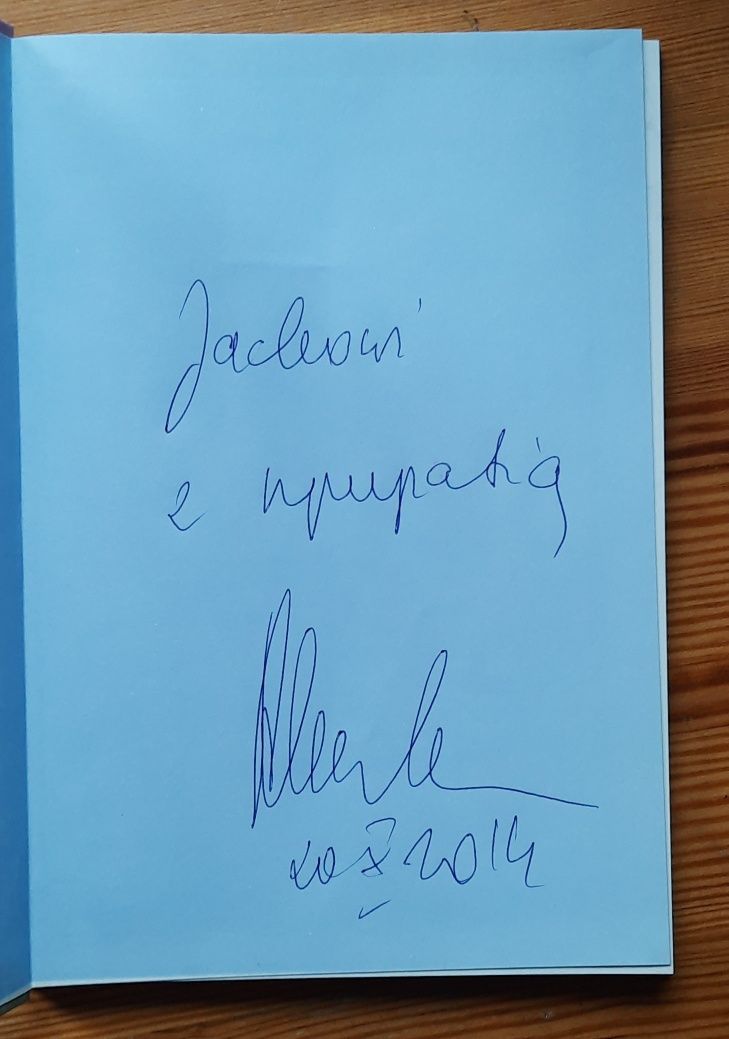 Jackowi
z sympatią
20 X 2014